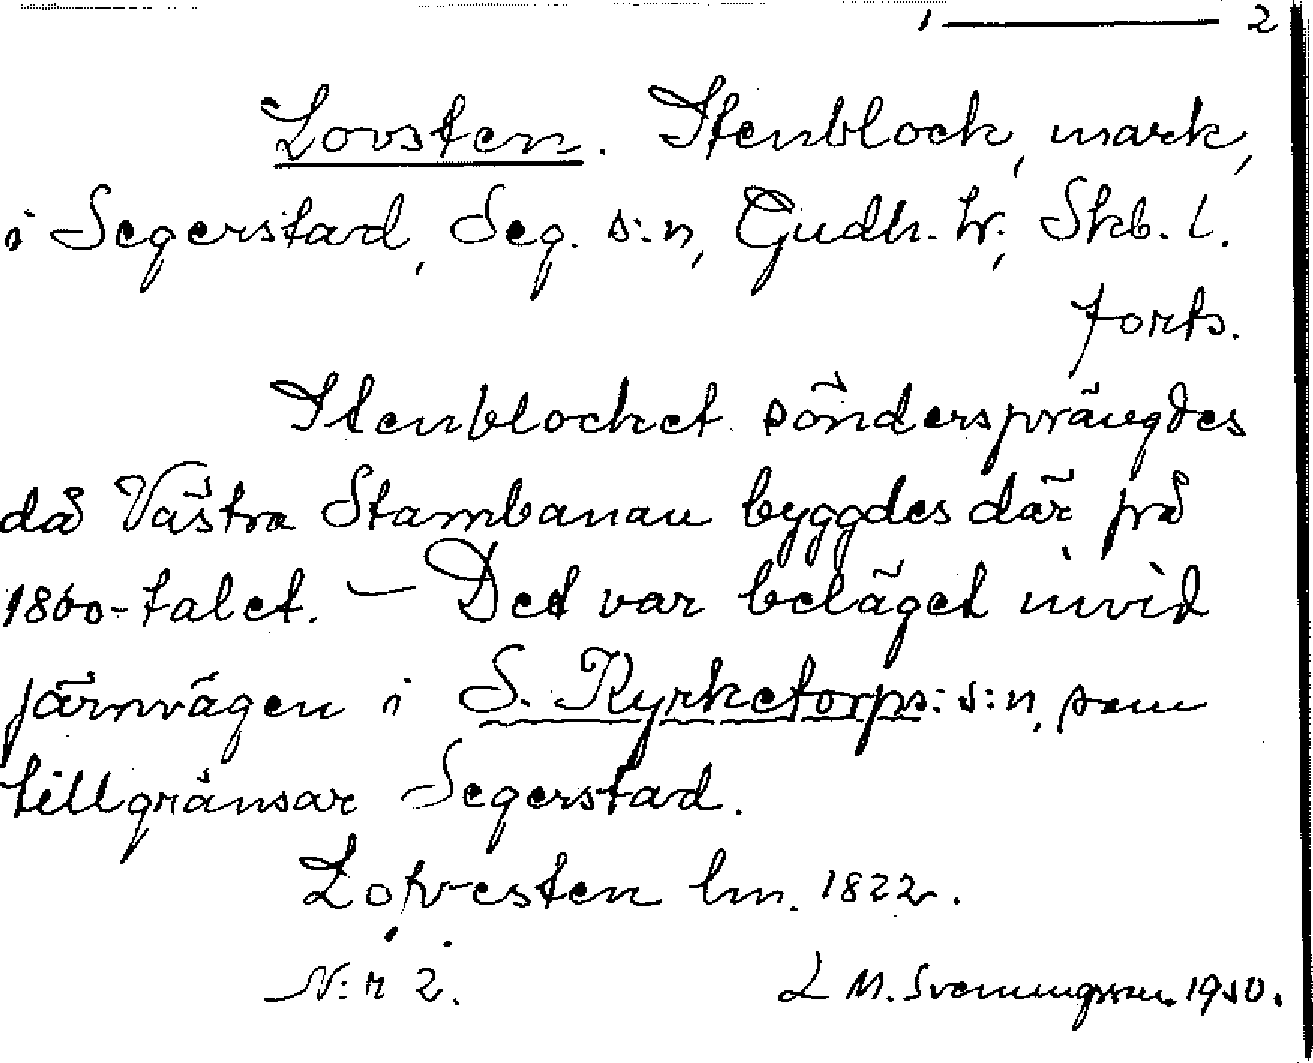 1 — 2
Lovsten. Stenblock, mark,
i Segerstad, Seg. s:n, Gudh. hr., Skb. l.
forts.
Stenblocket söndersprängdes
då Västra Stambanan byggdes där på
1860-talet. — Det var beläget invid
järnvägen i S. Kyrketorps: s:n, som
tillgränsar Segerstad.
Lofvesten lm. 1822.
N:r 2. L M. Svenningsson. 1930.